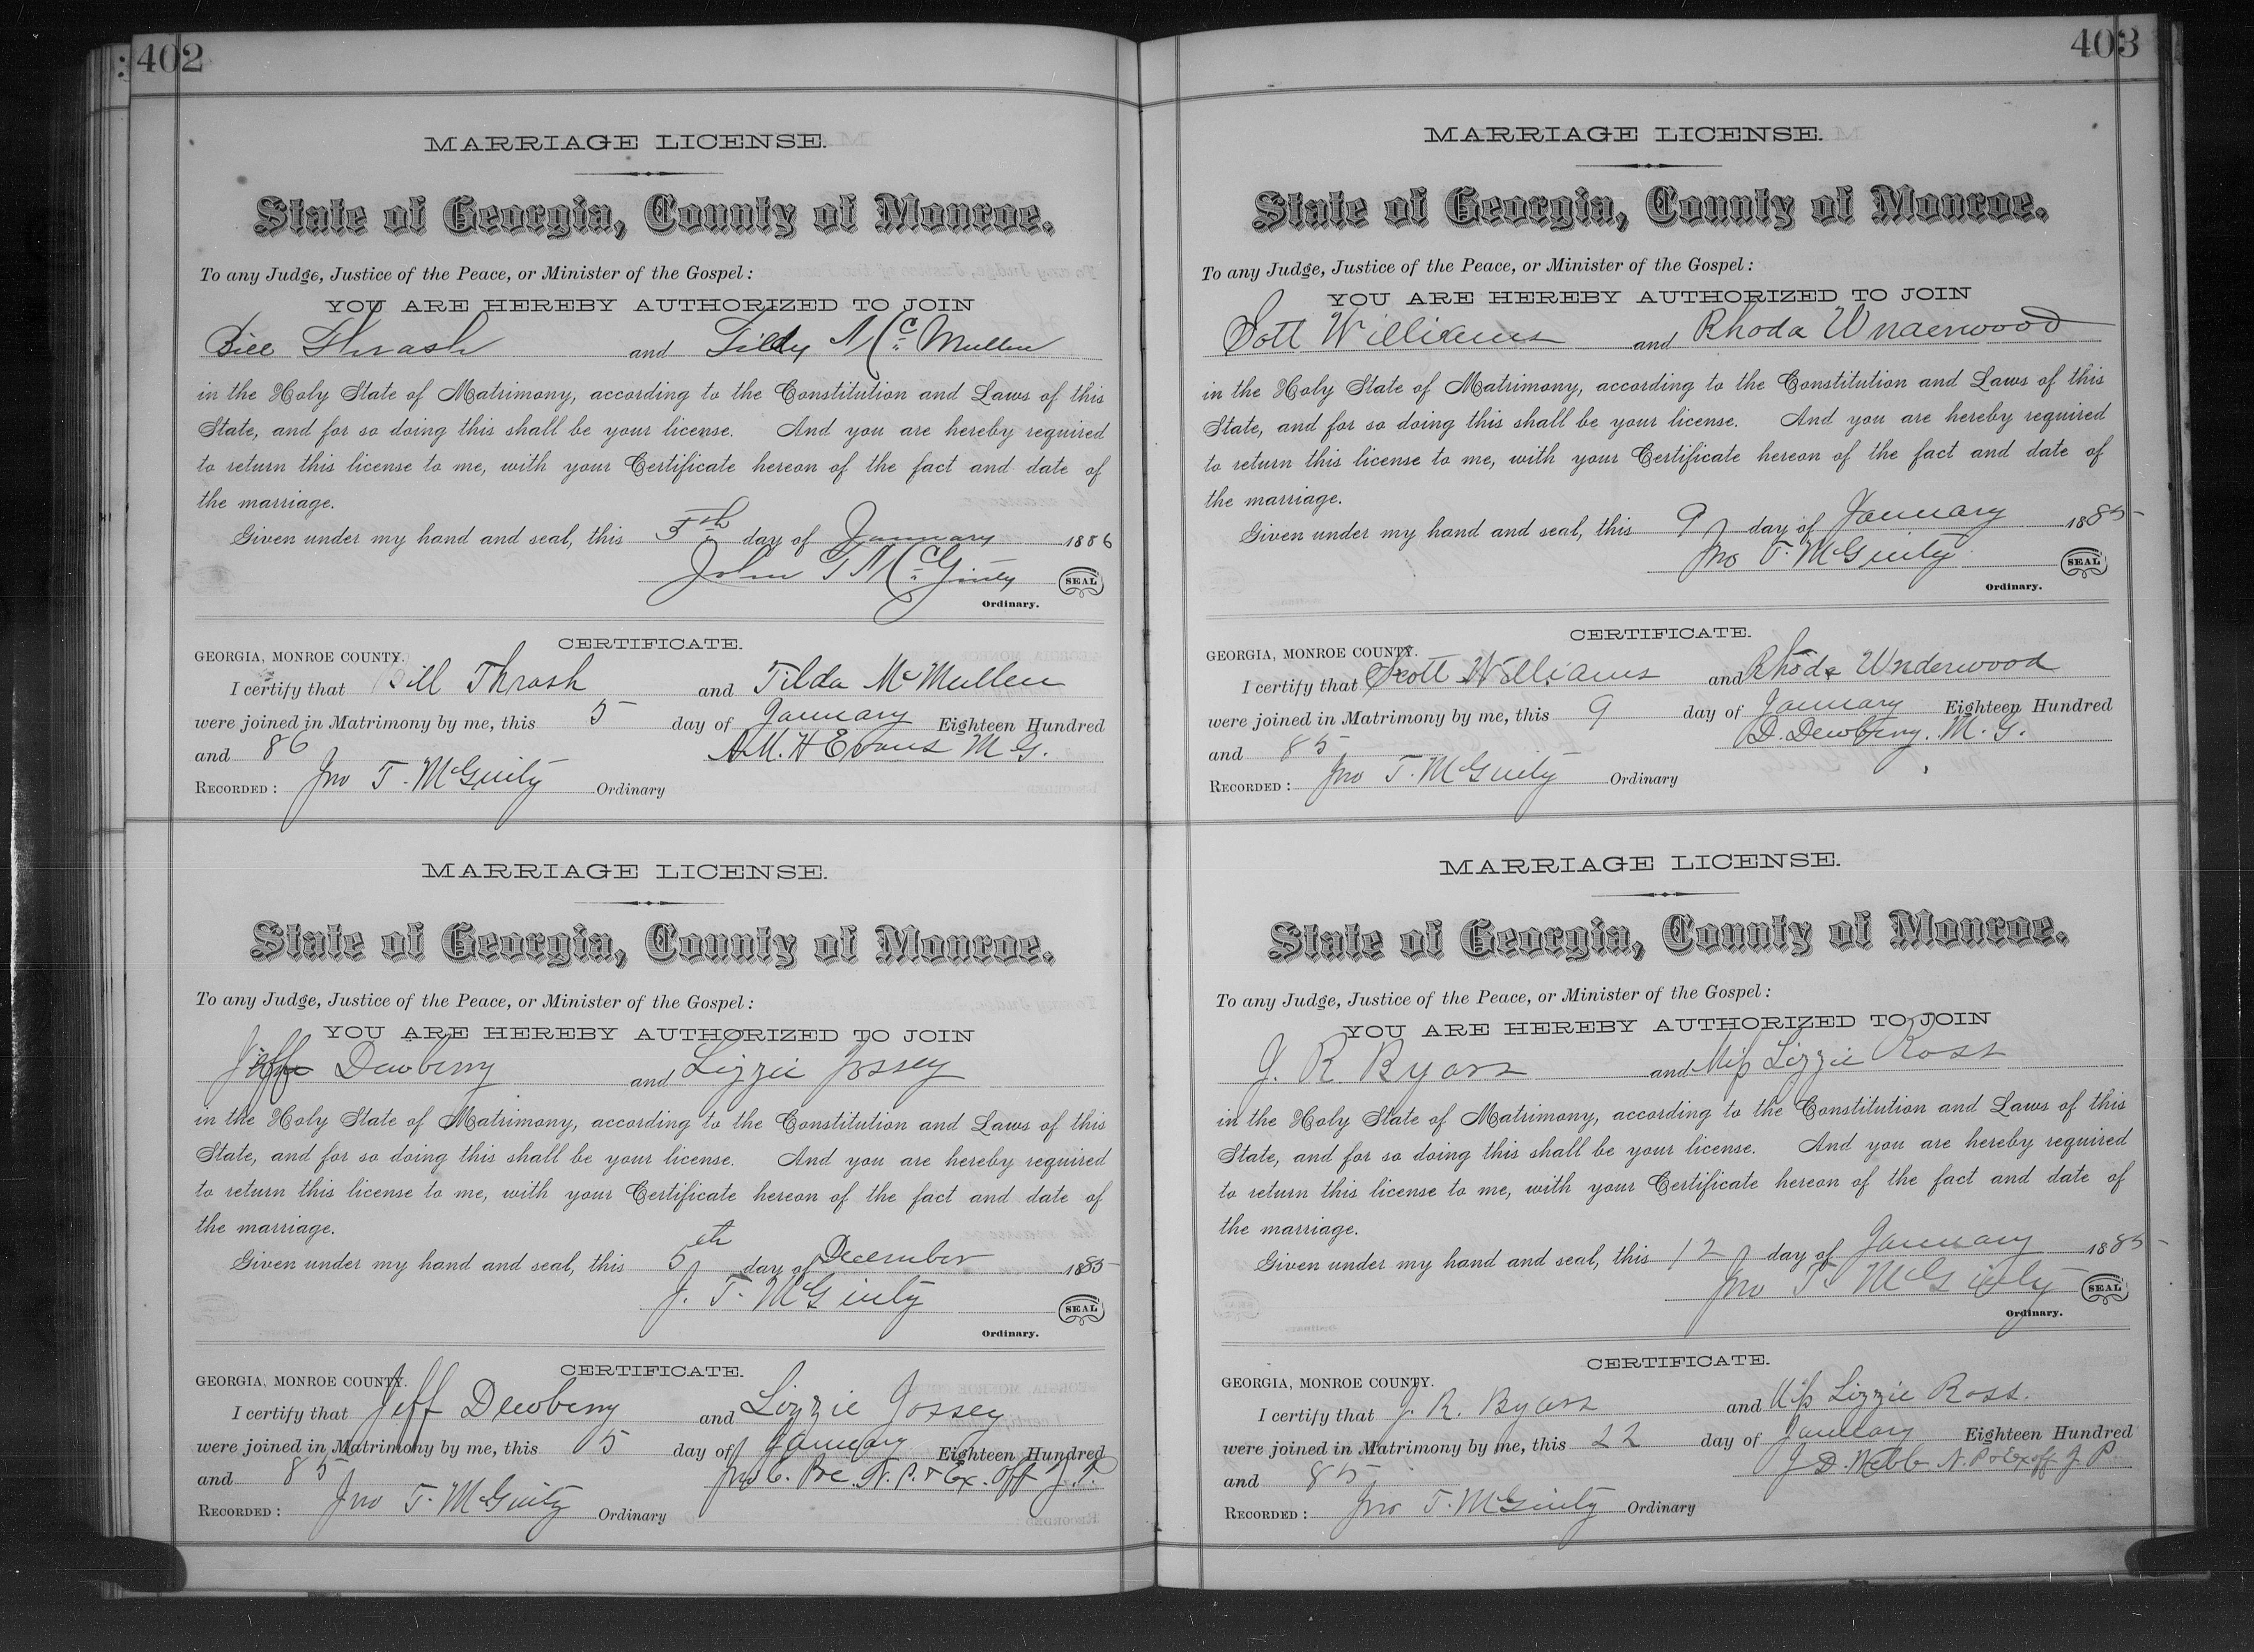 402
MARRIAGE LICENSE.
State of Georgia, County of Monroe.
To any Judge, Justice of the Peace, or Minister of the Gospel:
YOU ARE HEREBY AUTHORIZED TO JOIN
Bill Thrash and Tildy McMullen
in the Holy State of Matrimony, according to the Constitution and Laws of this
State, and for so doing this shall be your license. And you are hereby required
to return this license to me, with your Certificate hereon of the fact and date of
the marriage.
Given under my hand and seal, this 5th day of January 1886
John T McGinty SEAL
Ordinary.
CERTIFICATE.
GEORGIA, MONROE COUNTY.
I certify that Bill Thrash and Tilda McMullen
were joined in Matrimony by me, this 5 day of January Eighteen Hundred
and 86 A.M.H Evans M G.
RECORDED: Jno T. McGinty Ordinary
MARRIAGE LICENSE.
State of Georgia, County of Monroe.
To any Judge, Justice of the Peace, or Minister of the Gospel:
YOU ARE HEREBY AUTHORIZED TO JOIN
Jeff Dewberry and Lizzie Jossey
in the Holy State of Matrimony, according to the Constitution and Laws of this
State, and for so doing this shall be your license. And you are hereby required
to return this license to me, with your Certificate hereon of the fact and date of
the marriage.
Given under my hand and seal, this 5th day of December 1885
J. T. McGinty SEAL
Ordinary.
CERTIFICATE.
GEORGIA, MONROE COUNTY.
I certify that Jeff Dewberry and Lizzie Jossey
were joined in Matrimony by me, this 5 day of January Eighteen Hundred
and 85 Jno C. N. P. & Ex. Off J. P.
RECORDED: Jno T. McGinty Ordinary
403
MARRIAGE LICENSE.
State of Georgia, County of Monroe.
To any Judge, Justice of the Peace, or Minister of the Gospel:
YOU ARE HEREBY AUTHORIZED TO JOIN
Scott Williams and Rhoda Underwood
in the Holy State of Matrimony, according to the Constitution and Laws of this
State, and for so doing this shall be your license. And you are hereby required
to return this license to me, with your Certificate hereon of the fact and date of
the marriage.
Given under my hand and seal, this 9 day of January 1885
Jno T. McGinty SEAL
Ordinary.
CERTIFICATE.
GEORGIA, MONROE COUNTY.
I certify that Scott Williams and Rhoda Underwood
were joined in Matrimony by me, this 9 day of January Eighteen Hundred
and 85 D. Dewberry. M. G.
RECORDED: Jno T. McGinty Ordinary
MARRIAGE LICENSE.
State of Georgia, County of Monroe.
To any Judge, Justice of the Peace, or Minister of the Gospel:
YOU ARE HEREBY AUTHORIZED TO JOIN
J. R Byars and Miss Lizzie Ross
in the Holy State of Matrimony, according to the Constitution and Laws of this
State, and for so doing this shall be your license. And you are hereby required
to return this license to me, with your Certificate hereon of the fact and date of
the marriage.
Given under my hand and seal, this 12 day of January 1885
Jno T. McGinty SEAL
Ordinary.
CERTIFICATE.
GEORGIA, MONROE COUNTY.
I certify that J. R. Byars and Miss Lizzie Ross.
were joined in Matrimony by me, this 22 day of January Eighteen Hundred
and 85 J D. Webb N. P & Ex off J. P.
RECORDED: Jno T. McGinty Ordinary